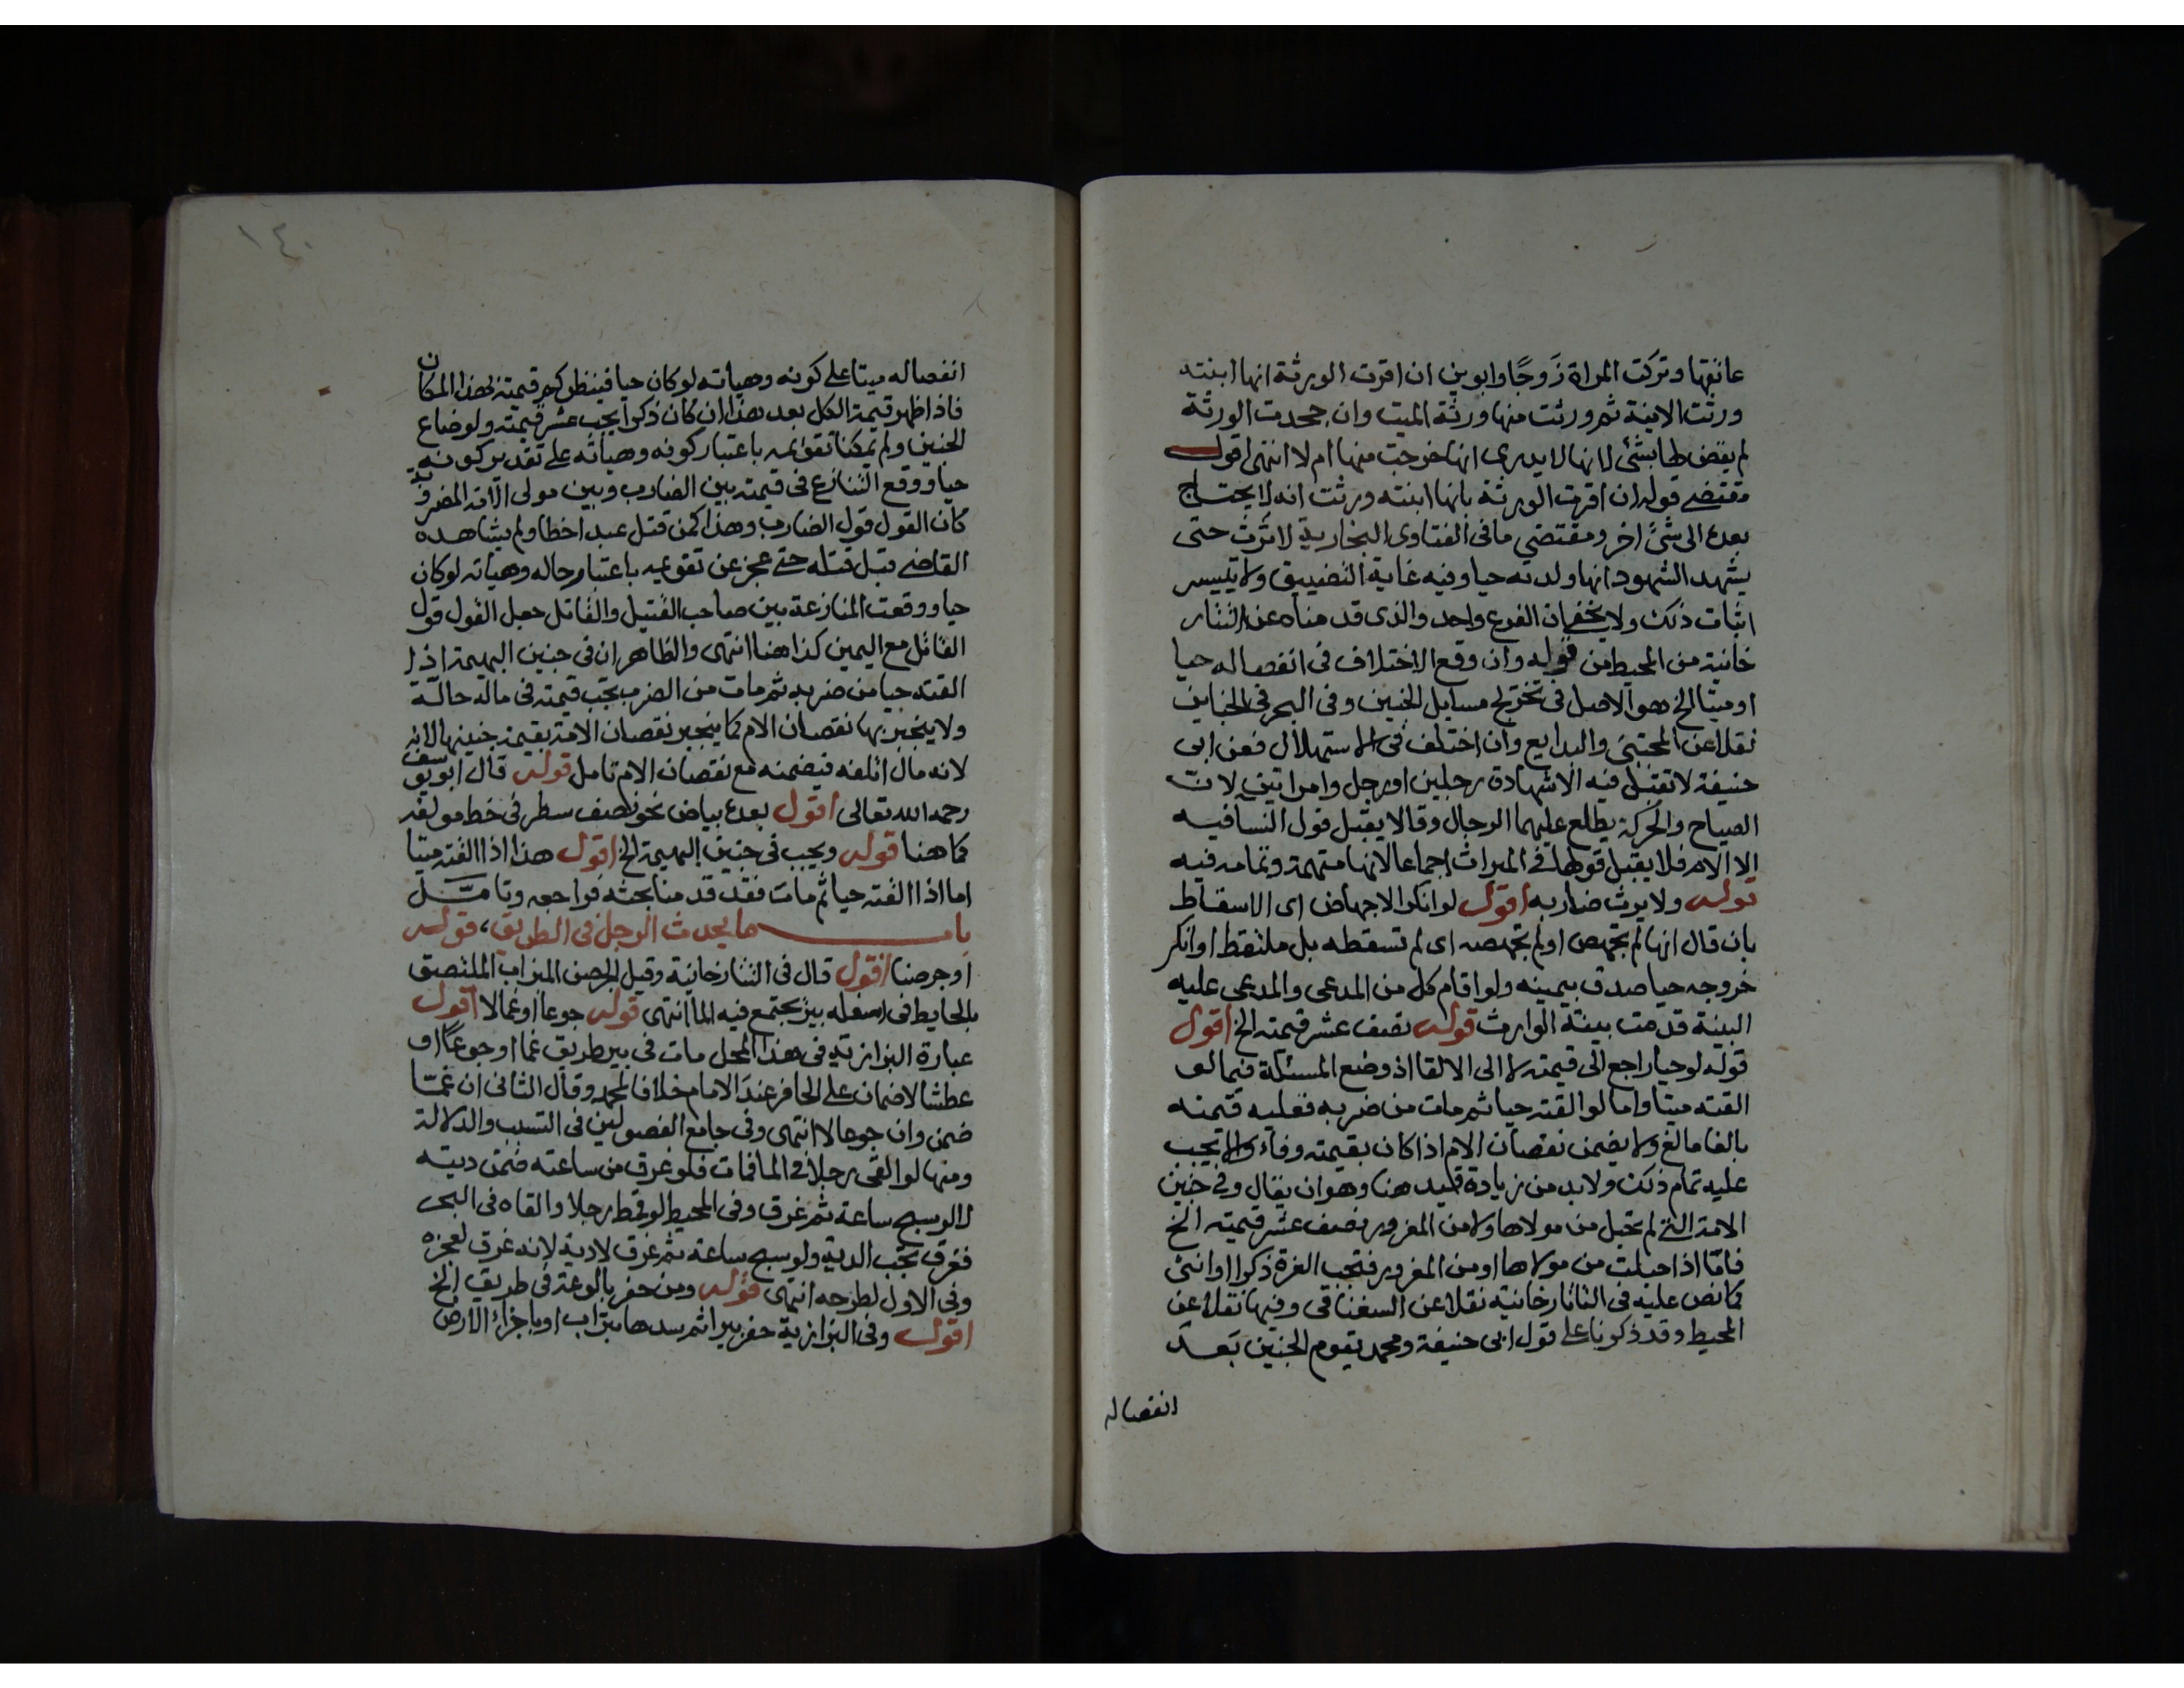 عانقها وتركت المراة زَوجًا وابوين ان اقرت الورثة انها ابنته
ورثت الابنة ثم ورثت منها ورثة الميت وان جحدت الورثة
لم يقض لها بشئ لانها لا يدرى انها خرجت منها ام لا انتهى اقول
مقتضى قوله ان اقرت الورثة بانها ابنته ورثت انه لا يحتاج
بعده الى شئ اخر ومقتضي ما فى الفتاوى البخارية لا ترث حتى
يشهد الشهود انها ولدته حيا وفيه غاية التضييق ولا يتيسر
اثبات ذلك ولا يخفى ان الفرع واحد والذى قدمناه عن التتار
خانية من المحيط من قوله وان وقع الاختلاف فى انفصاله حيا
او ميتا الخ هو الاصل فى تخريج مسايل الجنين وفى البحر فى الجنايز
نقلا عن المجتبى والبدايع وان اختلف فى الاستهلال فعن ابى
حنيفة لا تقبل فيه الا شهادة رجلين او رجل وامراتين لان
الصياح والحركة يطلع عليهما الرجال وقالا يقبل قول النسا فيه
الا الام فلا يقبل قولها فى الميراث اجماعا لانها متهمة وتمامه فيه
قوله ولا يرث ضاربه اقول لو انكر الاجهاض اى الاسقاط
بان قال انها لم تجهض او لم تجهضه اى لم تسقطه بل ملتقط او انكر
خروجه حيا صدق بيمينه ولو اقام كل من المدعى والمدعى عليه
البينة قدمت بينة الوارث قوله نصف عشر قيمته الخ اقول
قوله لو حيا راجع الى قيمته لا الى الالقا اذ وضع المسئلة فيما لو
القته ميتا واما لو القته حيا ثم مات من ضربه فعليه قيمته
بالغا ما بلغ ولا يضمن نقصان الام اذا كان بقيمته وفاء والا يجب
عليه تمام ذلك ولا بد من زيادة قيد هنا وهو ان يقال وفى جنين
الامة التى لم تحبل من مولاها ولا من المغرور نصف عشر قيمته الخ
فامّا اذا حبلت من مولاها او من المغرور فتجب الغرة ذكرا او انثى
كما نص عليه فى التاتارخانية نقلا عن السغناقى وفيها نقلا عن
المحيط وقد ذكرنا على قول ابى حنيفة ومحمد يقوم الجنين بَعد
انفصاله
١٤٠
انفصاله ميتا على كونه وهياته لو كان حيا فينظر كم قيمته بهذا المكان
فاذا ظهر قيمة الكل بعد هذا ان كان ذكرا يجب عشر قيمته ولو ضاع
الجنين ولم يمكنا تقويمه باعتبار كونه وهياته على تقدير كونه
حيا ووقع التنازع فى قيمته بين الضارب وبين مولى الامة المضروبة
كان القول قول الضارب وهذا كمن قتل عبدا خطا ولم يشاهده
القاضى قبل قتله حتى عجز عن تقويمه باعتبار حاله وهياته لو كان
حيا ووقعت المنازعة بين صاحب القتيل والقاتل جعل القول قول
القاتل مع اليمين كذا هنا انتهى والظاهر ان فى جنين البهيمة اذا
القته حيا من ضربه ثم مات من الضرب تجب قيمته فى ماله حالّة
ولا ينجبر بها نقصان الام كما ينجبر نقصان الامة بقيمة جنينها لانه
لانه مال اتلفه فيضمنه مع نقصان الام تامل قوله قال ابو يوسف
رحمه الله تعالى اقول بعده بياض نحو نصف سطر فى خط مولفه
كما هنا قوله ويجب فى جنين البهيمة الخ اقول هذا اذا القته ميتا
اما اذا القته حيا ثم مات فقد قدمنا بحثه فراجعه وتامل
باب ما يحدث الرجل فى الطريق، قوله
او جرصنا اقول قال فى التتارخانية وقيل الجرصن الميزاب الملتصق
بالحايط فى اسفله بير يجتمع فيه الما انتهى قوله جوعا او غما لا اقول
عبارة البزازية فى هذا المحل مات فى بير طريق غما او جوعًا او
عطشا لا ضمان على الحافر عند الامام خلافا لمحمد وقال الثانى ان غمّا
ضمن وان جوعا لا انتهى وفى جامع الفصولين فى التسبب والدلالة
ومنها لو القى رجلا فى الما فمات فلو غرق من ساعته ضمن ديته
لا لو سبح ساعة ثم غرق وفى المحيط لو قمط رجلا والقاه فى البحر
فغرق تجب الدية ولو سبح ساعة ثم غرق لا دية لانه غرق لعجزه
وفى الاول لطرحه انتهى قوله ومن حفر بالوعة فى طريق الخ
اقول وفى البزازية حفر بيرا ثم سدها بتراب او باجزاء الارض